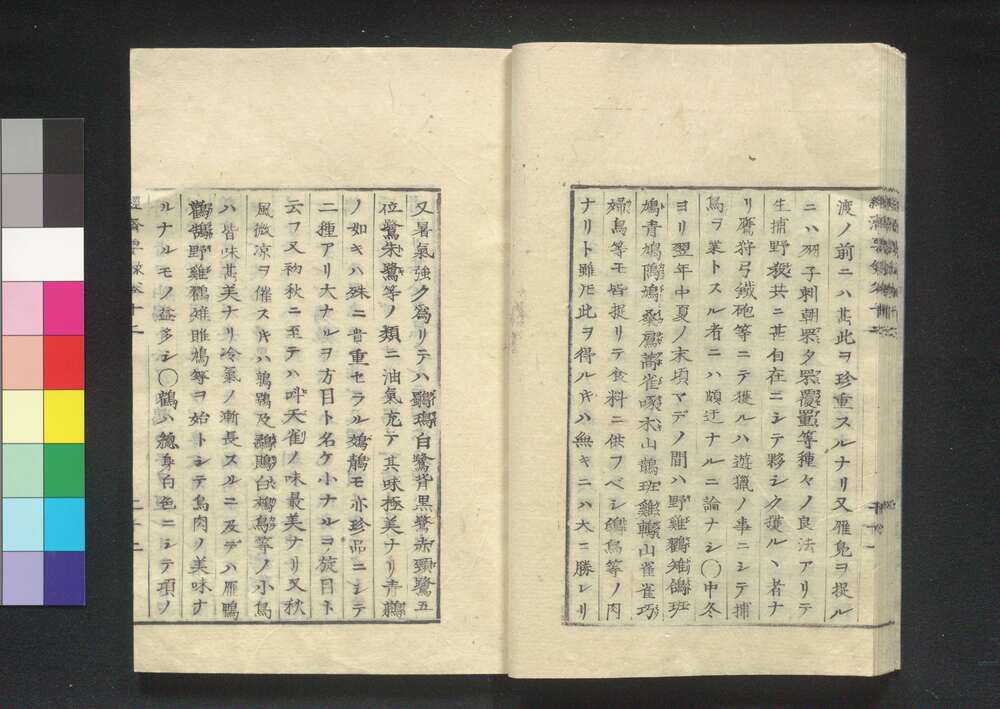 渡ノ前ニハ甚此ヲ珍重スルナリ又雁鳧ヲ捉ル
ニハ羽子刺朝罘夕罘覆罝等種々ノ良法アリテ
生捕野殺共ニ甚自在ニシテ夥シク獲ル丶者ナ
リ鷹狩弓鐵砲等ニテ獲ルハ遊獵ノ事ニシテ捕
鳥ヲ業トスル者ニハ頗迂ナルニ論ナシ〇中冬
ヨリ翌年中夏ノ末頃マデノ間ハ野雞鸐雉鴿班
鳩青鳩鳲鳩桑鳸蒿雀啄木山鵲班雞山雀雀巧
婦鳥等モ皆捉リテ食料ニ供フベシ鳥等ノ肉
ナリト雖𪜈此ヲ得ルキハ無キニハ大ニ勝レリ
又暑氣強ク爲リテハ白鷺背黒鷺赤頸鷺五
位鷺朱鷺等ノ類ニ油氣充テ其味極美ナリ青鷄
ノ如キハ殊ニ貴重セラル鵁鶄モ亦珍品ニシテ
二種アリ大ナルヲ方目ト名ケ小ナルヲ旋目ト
云フ又初秋ニ至テハ叫天雀ノ味最美ナリ又秋
風微凉ヲ催スキハ鶉鷃及白鳥等ノ小鳥
ハ皆味甚美ナリ冷氣ノ漸長スルニ及デハ雁鴨
鸛鵠野雞鸐雉雎鳩等ヲ始トシテ鳥肉ノ美味ナ
ルナルモノ益多シ〇鶴ハ總身白色ニシテ項ノ